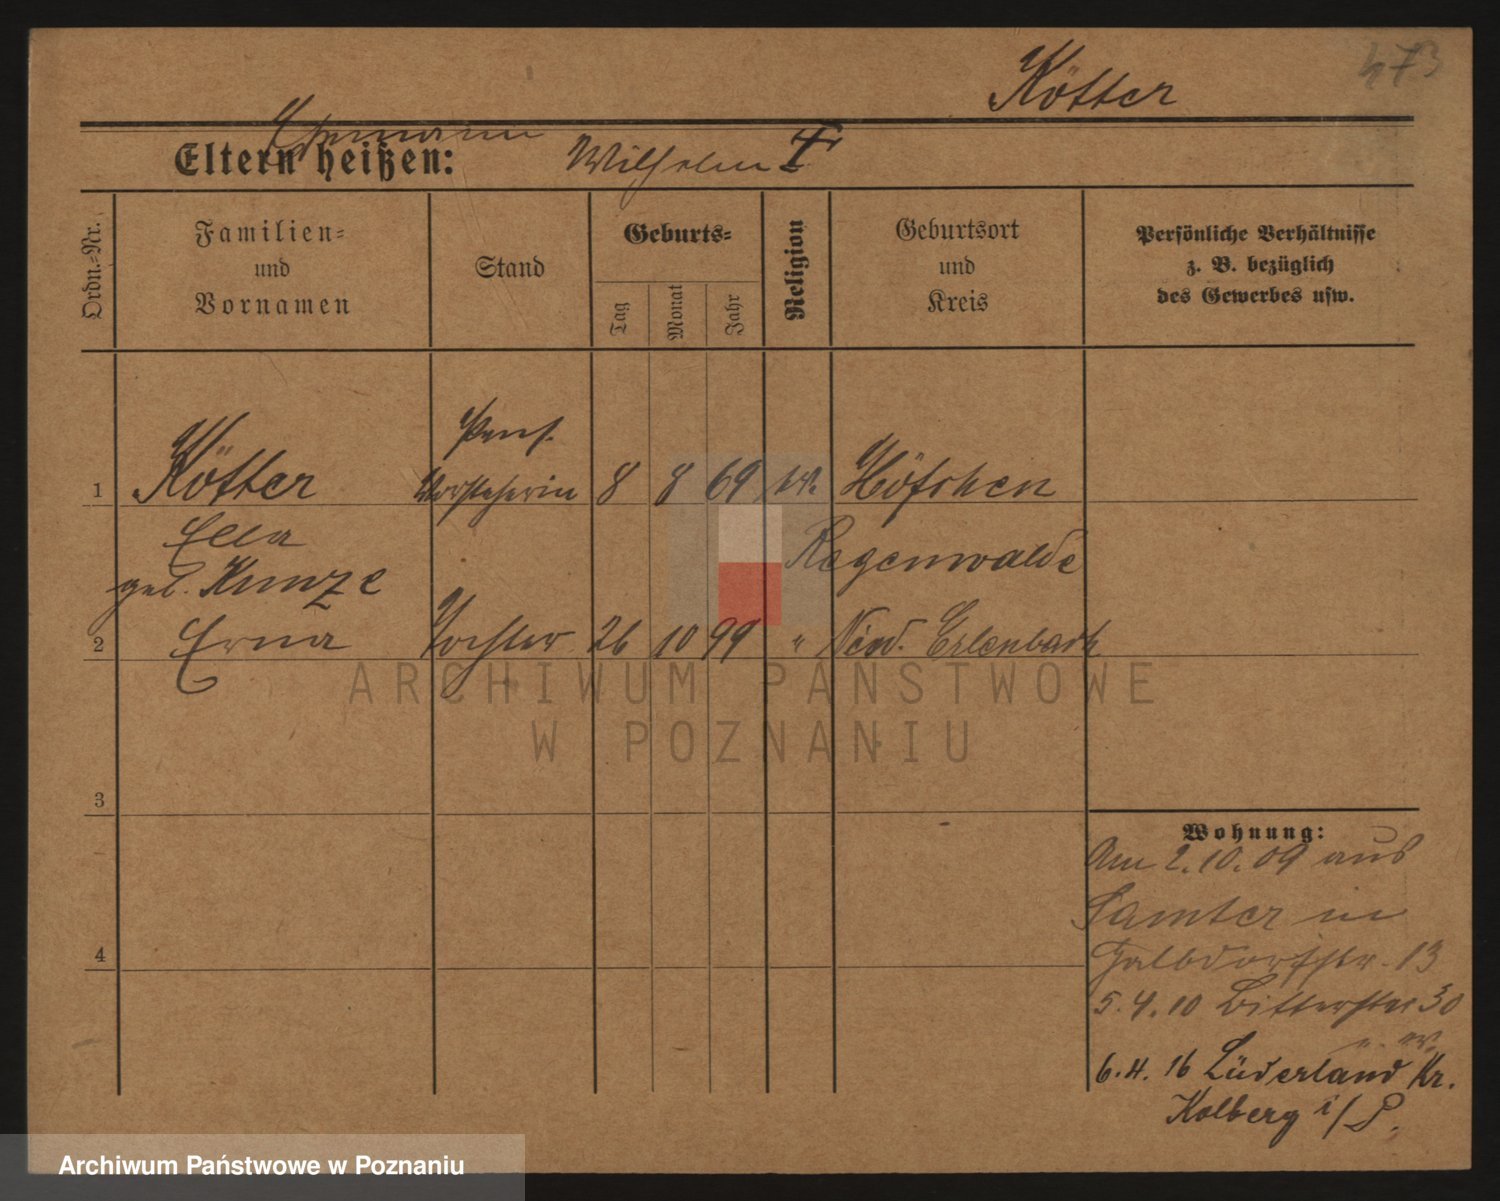 473
Kötter
Ehemann
Eltern heißen: Wilhelm
Ordn.-Nr.
Familien-
und
Vornamen
Stand
Geburts-
Tag
Monat
Jahr
Religion
Geburtsort
und
Kreis
Persönliche Verhältnisse
z. B. bezüglich
des Gewerbes usw.
Pens.
1 Kötter Vorsteherin 8 8 69 ev. Höfchen
Ella Regenwalde
geb. Kunze
2 Erna Tochter 26 10 99 " Nied. Erlenbach
3
4
Wohnung:
Am 2.10.09 aus
Samter in
13
5.4.10 Bitterstr 30
6.4.16 Lüderland Kr.
Kolberg i/P.
ARCHIWUM PAŃSTWOWE
W POZNANIU
Archiwum Państwowe w Poznaniu